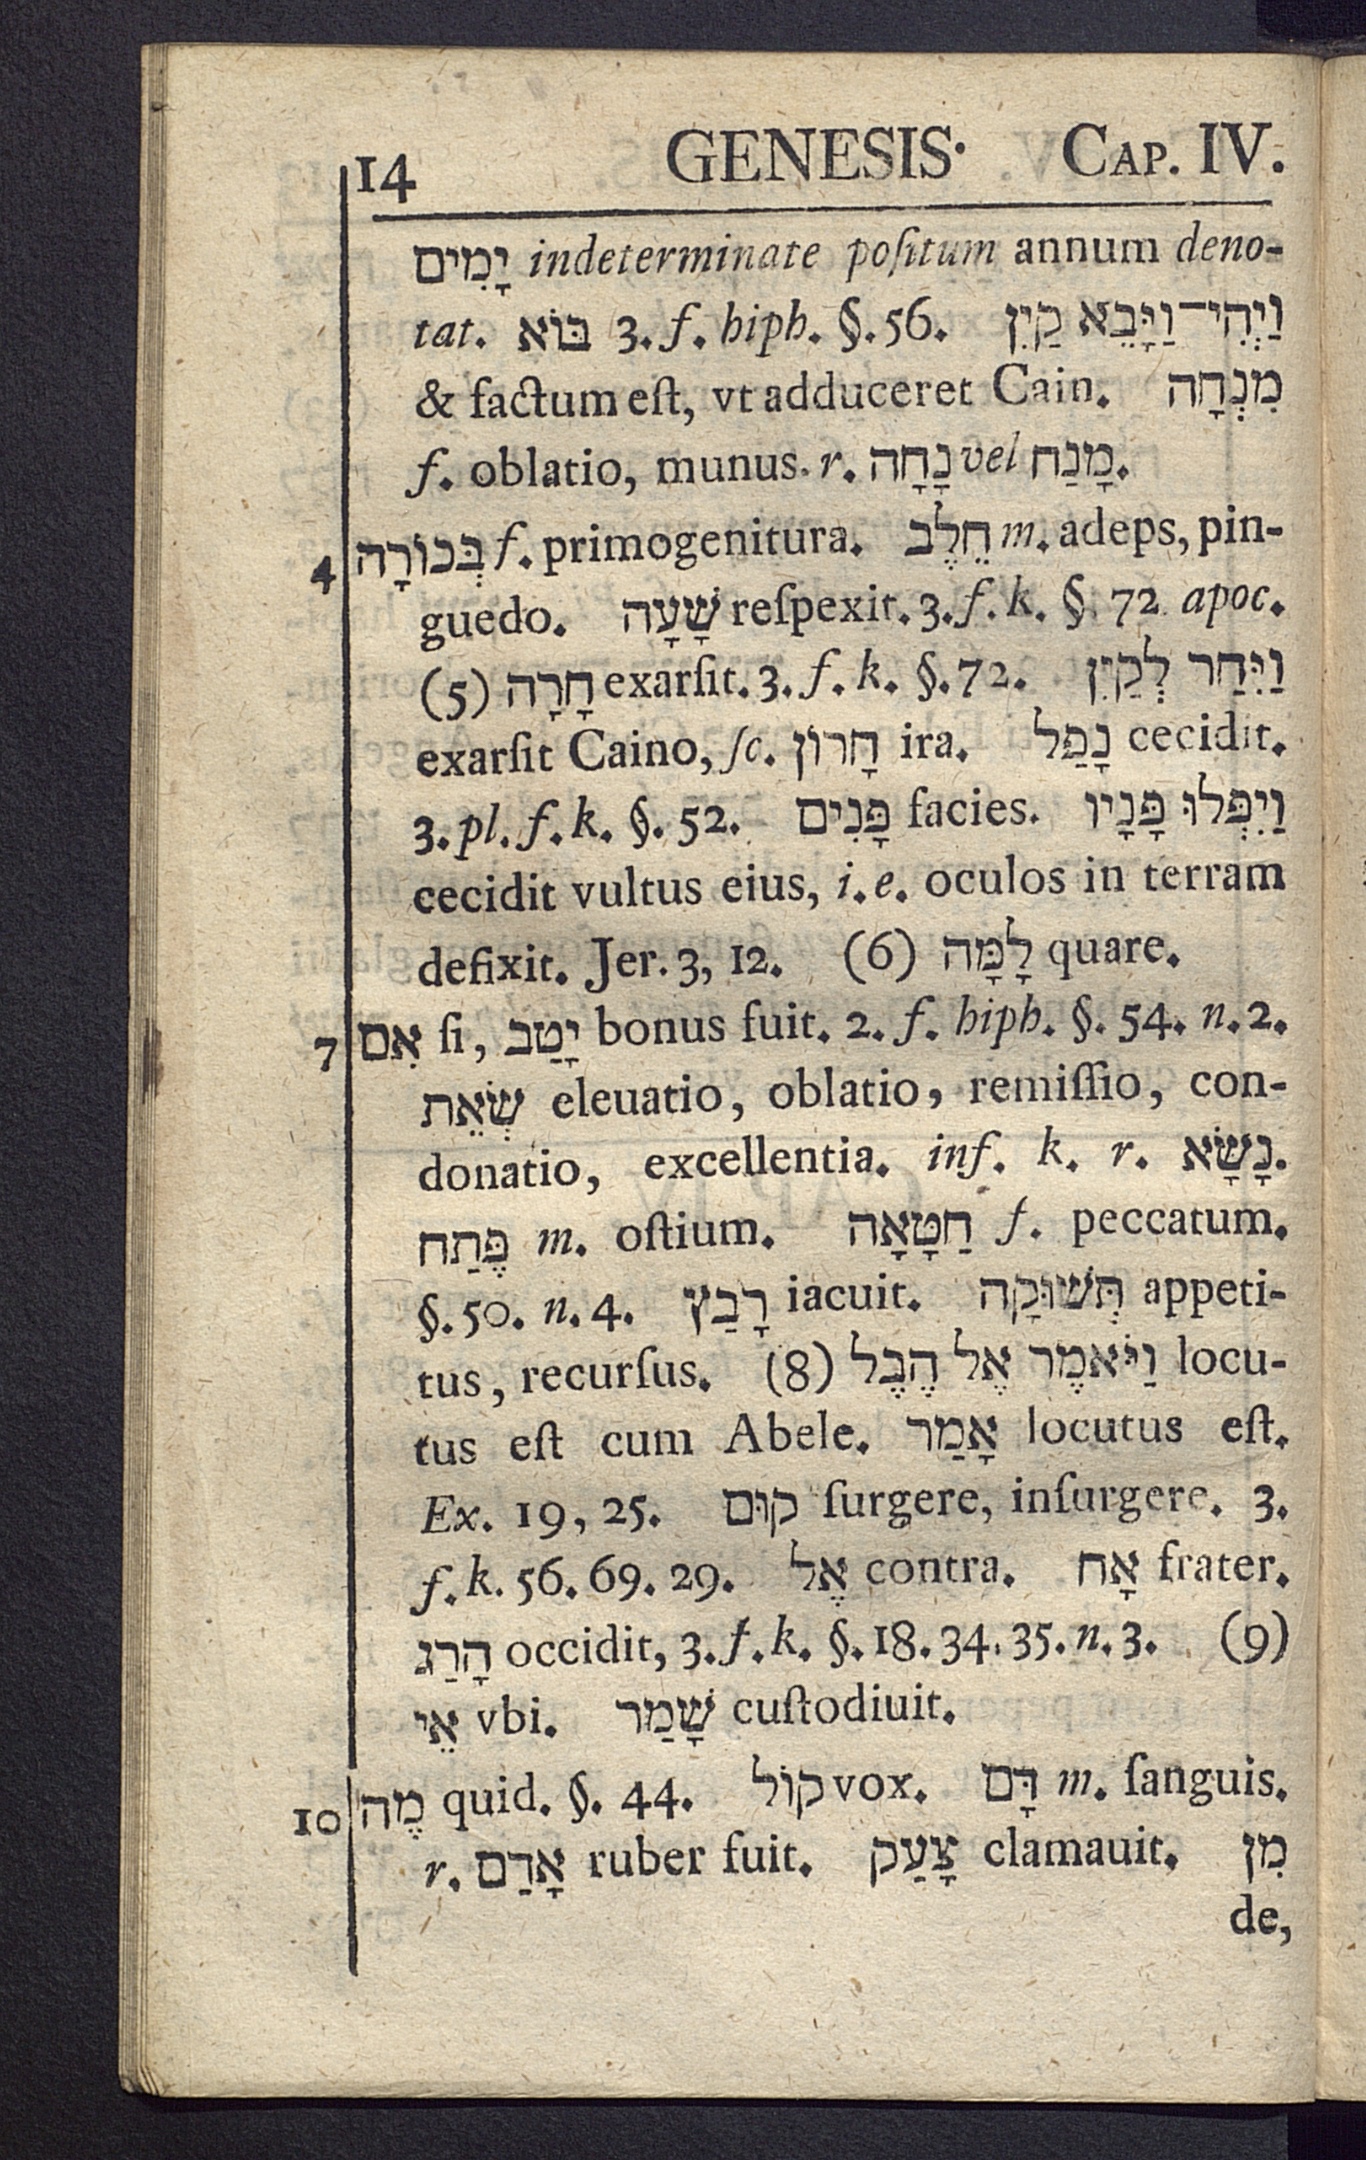 14 GENESIS· CAP. IV.
יָמִים indeterminate poſitum annum deno-
tat. בּוֹא 3. f. hiph. §. 56. וַיְהִי־וַיָּבֵא קַיִן
& factum eſt, vt adduceret Cain. מִנְחָה
f. oblatio, munus. r. נָחָה vel מָנַח.
4 בְּכוֹרָה f. primogenitura. חֵלֶב m. adeps, pin-
guedo. שָׁעָה reſpexit. 3. f. k. §. 72. apoc.
(5) חָרָה exarſit. 3. f. k. §. 72. וַיִּחַר לְקַיִן
exarſit Caino, ſc. חָרוֹן ira. נָפַל cecidit.
3. pl. f. k. §. 52. פָּנִים facies. וַיִּפְּלוּ פָּנָיו
cecidit vultus eius, i. e. oculos in terram
defixit. Jer. 3, 12. (6) לָמָּה quare.
7 אִם ſi, יָטַב bonus fuit. 2. f. hiph. §. 54. n. 2.
שְׂאֵת eleuatio, oblatio, remiſſio, con-
donatio, excellentia. inf. k. r. נָשָׂא.
פֶּתַח m. oſtium. חַטָּאָה f. peccatum.
§. 50. n. 4. רָבַץ iacuit. תְּשׁוּקָה appeti-
tus, recurſus. (8) וַיֹּאמֶר אֶל הֶבֶל locu-
tus eſt cum Abele. אָמַר locutus eſt.
Ex. 19, 25. קוּם ſurgere, inſurgere. 3.
f. k. 56. 69. 29. אֶל contra. אָח frater.
הָרַג occidit, 3. f. k. §. 18. 34. 35. n. 3. (9)
אֵי vbi. שָׁמַר cuſtodiuit.
10 מֶה quid. §. 44. קוֹל vox. דָּם m. ſanguis.
r. אָדַם ruber fuit. צָעַק clamauit. מִן
de,